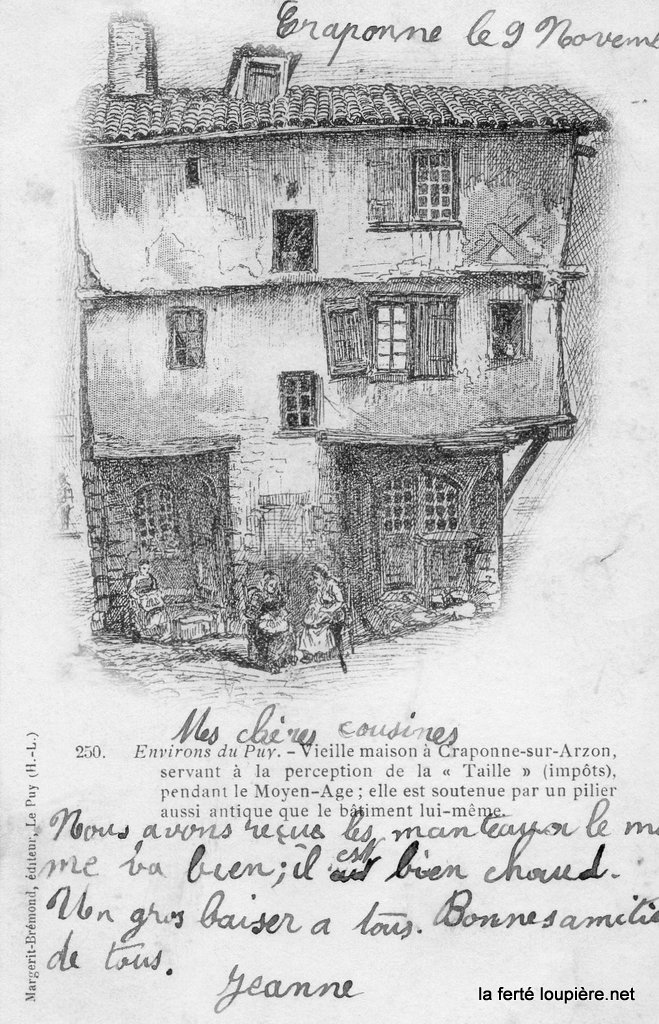 Craponne le 9 Novem
Mes chères cousines
250. Environs du Puy. - Vieille maison à Craponne-sur-Arzon,
servant à la perception de la « Taille » (impôts),
pendant le Moyen-Age ; elle est soutenue par un pilier
aussi antique que le bâtiment lui-même.
Nous avons reçue les manteaux le m
me va bien; il est bien chaud.
Un gros baiser a tous. Bonnes amitié
de tous.
Jeanne
Margerit-Brémond, éditeur, Le Puy (H.-L.)
la ferté loupière.net